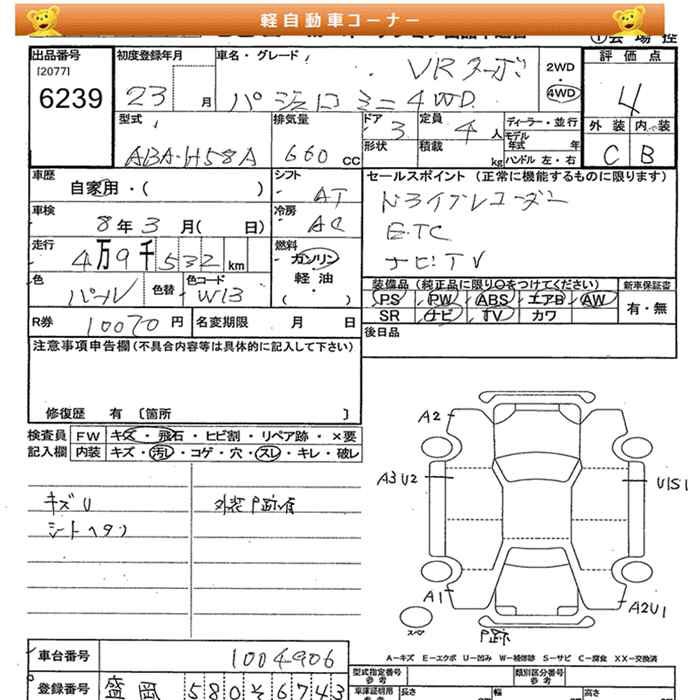 軽自動車コーナー
出品番号
[2077]
6239
初度登録年月
23 月
車名・グレード
VRターボ
パジェロミニ4WD
2WD・4WD
評価点
4
外装 内装
C B
型式
ABA-H58A
排気量
660 CC
ドア
3
定員
4 人
形状
積載
kg
ディーラー・並行
モデル年式 年
ハンドル 左・右
車歴
自家用・( )
シフト
AT
セールスポイント (正常に機能するものに限ります)
ドライブレコーダー
ETC
ナビTV
車検
8年3月( 日)
冷房
AC
走行
4万9千532km
燃料
ガソリン
軽油
・( )
色
パール
色替
色コード
W13
装備品 (純正品に限り○をつけてください)
新車保証書
PS PW ABS エアB AW
SR ナビ TV カワ
有・無
R券 10070円
名変期限 月 日
後日品
注意事項申告欄(不具合内容等は具体的に記入して下さい)
修復歴 有 〔箇所 〕
検査員記入欄
FW キズ・飛石・ヒビ割・リペア跡・×要
内装 キズ・汚レ・コゲ・穴・スレ・キレ・破レ
キズU
シートヘタリ
外装P跡有
A2
A3 U2
U1S1
A1
A2U1
スペア
P跡
A-キズ E-エクボ U-凹み W-補修跡 S-サビ C-腐食 XX-交換済
車台番号 1004906
登録番号 盛岡 580そ6743
型式指定番号 参考
類別区分番号 参考
車庫証明用 参考
長さ
幅
高さ